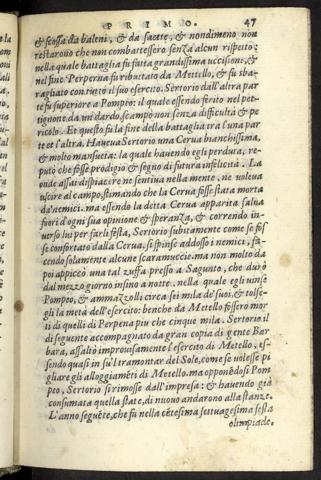 PRIMO. 47
& scossa da baleni, & da saette, & nondimeno non
restarono che non combattessero senza alcun rispetto:
nella quale battaglia fu fatta grandissima uccisione, &
nel fine Perperna fu ributtato da Metello, & fu sba-
ragliato con tutto il suo esercito. Sertorio dall'altra par
te fu superiore a Pompeo: il quale essendo ferito nel pet-
tignone da un dardo, scampò non senza difficultà & pe
ricolo. Et questo fu la fine della battaglia tra l'una par
te et l'altra. Haueua Sertorio una Cerua bianchissima,
& molto mansueta: la quale hauendo egli perduta, re-
putò che fosse prodigio & segno di futura infelicità. La
onde assai dispiacere ne sentiua nella mente, ne uoleua
uscire al campo, stimando che la Cerua fosse stata morta
da'nemici. ma essendo la detta Cerua apparita salua
fuori d'ogni sua opinione & speranza, & correndo in-
uerso lui per farli festa, Sertorio subitamente come se fos
se confortato dalla Cerua, si spinse addosso i nemici, fa-
cendo solamente alcune scaramuccie. ma non molto da
poi appiccò una tal zuffa presso a Sagunto, che durò
dal mezzo giorno insino a notte. nella quale egli uinse
Pompeo, & ammazzolli circa sei mila de' suoi, & tolse-
gli la metà dell'esercito: benche da Metello fossero mor
ti di quelli di Perpena piu che cinque mila. Sertorio il
dì seguente accompagnato da gran copia di gente Bar
bara, assaltò improuisamente l'esercito di Metello, es-
sendo quasi in su'l tramontar del Sole, come se uolesse pi
gliare gli alloggiamẽti di Metello. ma opponẽdosi Pom
peo, Sertorio si rimosse dall'impresa: & hauendo già
consumata quella state, di nuouo andarono alla stanze.
L'anno seguẽte, che fu nella cẽtesima settuagesima sesta
olimpiade.